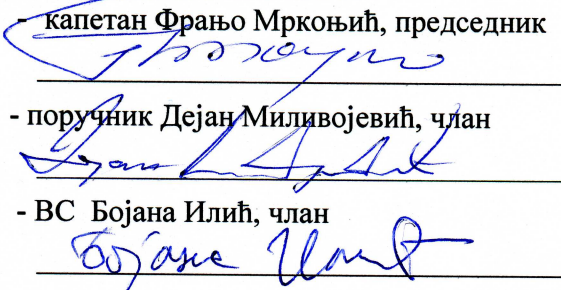 - капетан Фрањо Мркоњић, председник
- поручник Дејан Миливојевић, члан
- ВС Бојана Илић, члан
Бојана Илић